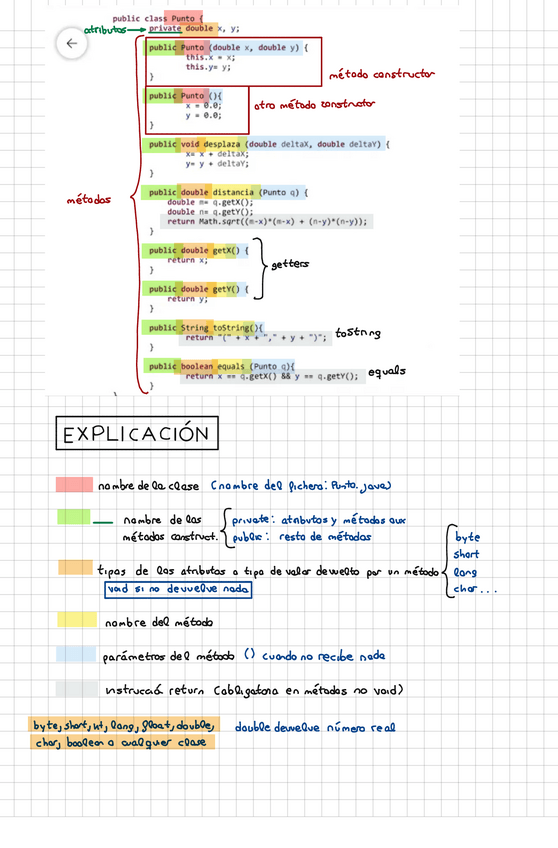 public class Punto {
atributos private double x, y;
public Punto (double x, double y) {
this.x = x;
this.y= y;
}
método constructor
public Punto (){
x = 0.0;
y = 0.0;
}
otro método constructor
public void desplaza (double deltaX, double deltaY) {
x= x + deltaX;
y= y + deltaY;
}
métodos
public double distancia (Punto q) {
double m= q.getX();
double n= q.getY();
return Math.sqrt((m-x)*(m-x) + (n-y)*(n-y));
}
public double getX() {
return x;
}
getters
public double getY() {
return y;
}
public String toString(){
return "(" + x + "," + y + ")";
}
toString
public boolean equals (Punto q){
return x == q.getX() && y == q.getY();
}
equals
}
EXPLICACIÓN
nombre de la clase (nombre del fichero: Punto.java)
nombre de los
métodos construct.
private: atributos y métodos aux
public: resto de métodos
tipos de los atributos o tipo de valor devuelto por un método
void si no devuelve nada
byte
short
long
char...
nombre del método
parámetros del método () cuando no recibe nada
instrucció return (obligatoria en métodos no void)
byte, short, int, long, float, double,
char, boolean o cualquier clase
double devuelve número real